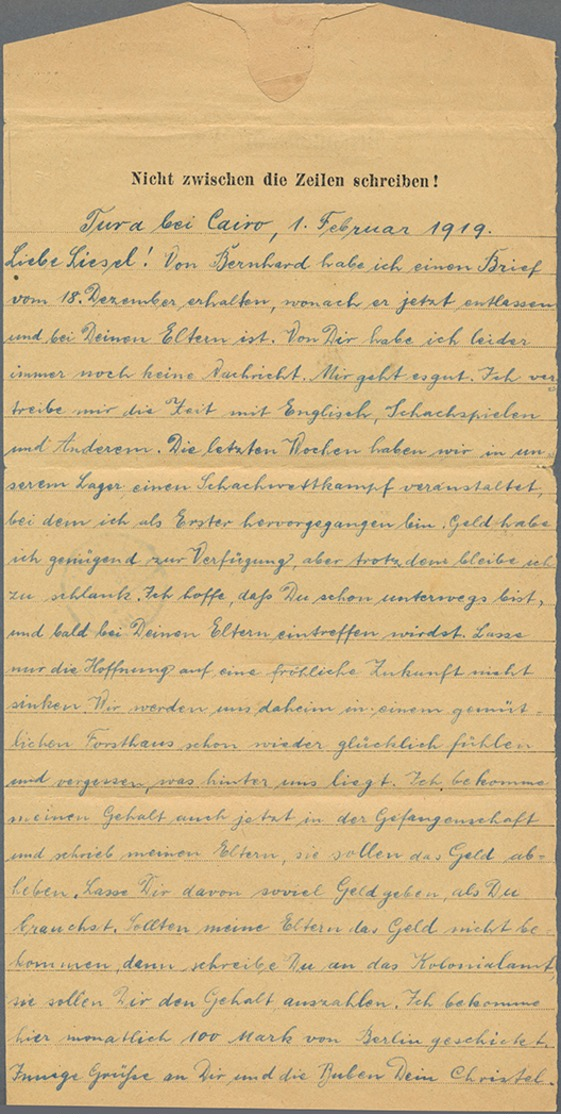 Nicht zwischen die Zeilen schreiben!
Tura bei Cairo, 1. Februar 1919.
Liebe Liesel! Von Bernhard habe ich einen Brief
vom 18. Dezember erhalten, wonach er jetzt entlassen
und bei Deinen Eltern ist. Von Dir habe ich leider
immer noch keine Nachricht. Mir geht es gut. Ich ver=
treibe mir die Zeit mit Englisch, Schachspielen
und Anderem. Die letzten Wochen haben wir in un=
serem Lager einen Schachwettkampf veranstaltet,
bei dem ich als Erster hervorgegangen bin. Geld habe
ich genügend zur Verfügung, aber trotzdem bleibe ich
zu schlank. Ich hoffe, daß Du schon unterwegs bist,
und bald bei Deinen Eltern eintreffen wirdst. Lasse
nur die Hoffnung auf eine fröhliche Zukunft nicht
sinken. Wir werden uns daheim in einem gemüt=
lichen Forsthaus schon wieder glücklich fühlen
und vergessen, was hinter uns liegt. Ich bekomme
meinen Gehalt auch jetzt in der Gefangenschaft
und schrieb meinen Eltern, sie sollen das Geld ab=
heben. Lasse Dir davon soviel Geld geben, als Du
brauchst. Sollten meine Eltern das Geld nicht be=
kommen, dann schreibe Du an das Kolonialamt,
sie sollen Dir den Gehalt auszahlen. Ich bekomme
hier monatlich 100 Mark von Berlin geschickt.
Innige Grüße an Dir und die Buben Dein Christel.